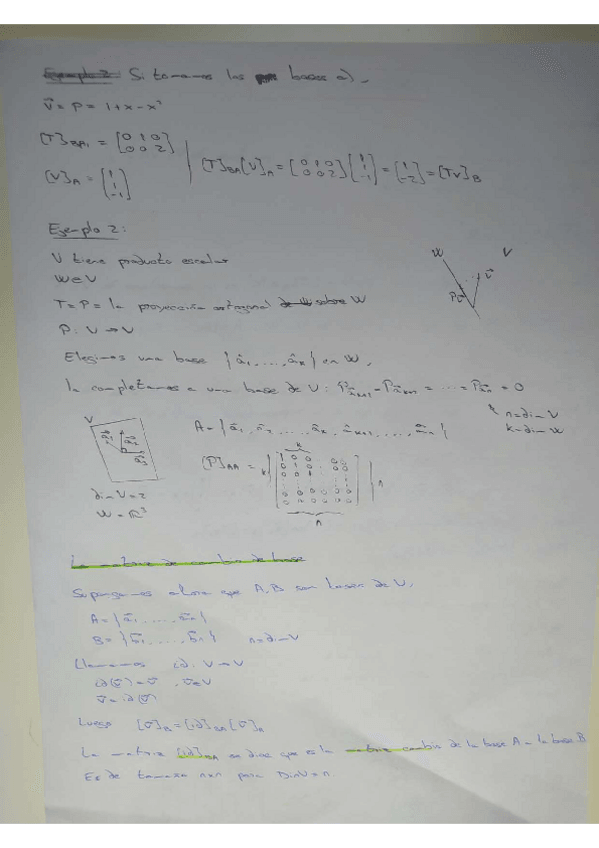 Si tomamos las bases a).
v⃗ = P = 1+x-x²
[T]BA = [0 1 0; 0 0 2]
[V]A = (1 1 -1)
[T]BA[V]A = [0 1 0; 0 0 2](1 1 -1) = [1 -2] = [Tv]B
Ejemplo 2:
V tiene producto escalar
W∈V
T=P= la proyección ortogonal sobre W
P: V→V
W V
v⃗
Pv⃗
Elegimos una base {a⃗1, ...., a⃗k} en W,
la completamos a una base de V: = .... = 0
n=dim V
k=dim W
V
a⃗1 a⃗2
a⃗3
dim V=2
W=ℝ³
A={a⃗1, a⃗2, ...., a⃗k, a⃗k+1, ...., a⃗n}
[P]AA =
k
k
n
n
La matriz de cambio de base
Supongamos ahora que A,B son bases de V,
A={a⃗1, ....., a⃗n}
B={b⃗1, ....., b⃗n} n=dim V
Llamamos id: V→V
id(v⃗)=v⃗, v⃗∈V
v⃗=id(v⃗)
Luego [v⃗]B=[id]BA[v⃗]A
La matriz [id]BA se dice que es la matriz cambio de la base A a la base B
Es de tamaño nxn para DimV=n.